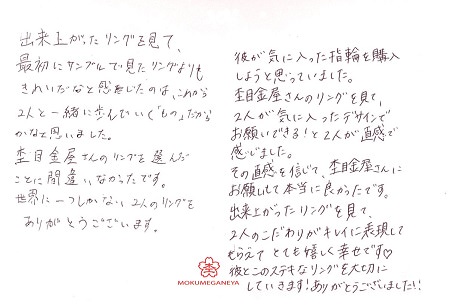 出来上がったリングを見て、
最初にサンプルで見たリングよりも
きれいだなと感じたのは、これから
2人と一緒に歩んでいく「もの」だから
かなと思いました。
杢目金屋さんのリングを選んだ
ことに間違いなかったです。
世界に一つしかない2人のリングを
ありがとうございます。
彼が気に入った指輪を購入
しようと思っていました。
杢目金屋さんのリングを見て、
2人が気に入ったデザインで
お願いできる!と2人が直感で
感じました。
その直感を信じて、杢目金屋さんに
お願いして本当に良かったです。
出来上がったリングを見て、
2人のこだわりがキレイに表現して
もらえてとても嬉しく幸せです♡
彼とこのステキなリングを大切に
していきます!ありがとうございました!!
杢
MOKUMEGANEYA